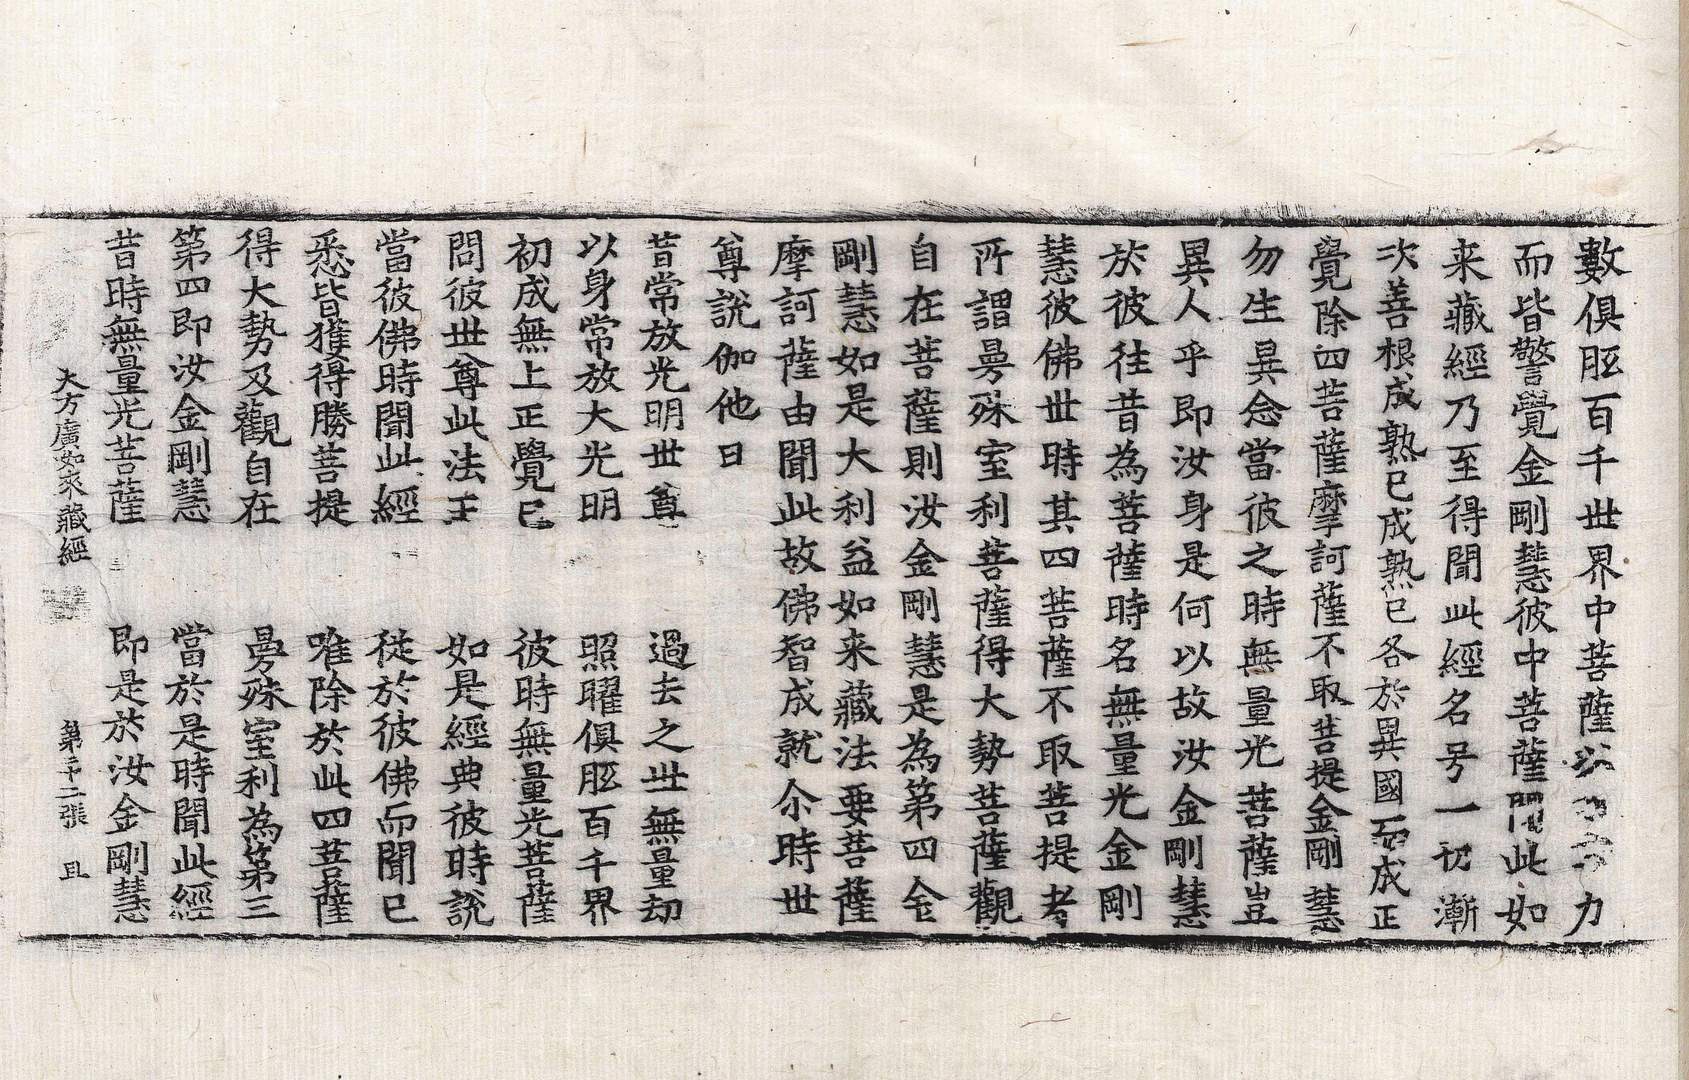 數俱胝百千世界中菩薩以力
而皆警覺金剛慧彼中菩薩聞此如
来藏經乃至得聞此經名号一切漸
次善根成熟已成熟已各於異國而成正
覺除四菩薩摩訶薩不取菩提金剛慧
勿生異念當彼之時無量光菩薩豈
異人乎即汝身是何以故汝金剛慧
於彼往昔為菩薩時名無量光金剛
慧彼佛世時其四菩薩不取菩提者
所謂曼殊室利菩薩得大勢菩薩觀
自在菩薩則汝金剛慧是為第四金
剛慧如是大利益如来藏法要菩薩
摩訶薩由聞此故佛智成就尒時世
尊說伽他曰
昔常放光明世尊 過去之世無量劫
以身常放大光明 照曜俱胝百千界
初成無上正覺已 彼時無量光菩薩
問彼世尊此法王 如是經典彼時說
當彼佛時聞此經 從於彼佛而聞已
悉皆獲得勝菩提 唯除於此四菩薩
得大勢及觀自在 曼殊室利為第三
第四即汝金剛慧 當於是時聞此經
昔時無量光菩薩 即是於汝金剛慧
大方廣如来藏經 第二張